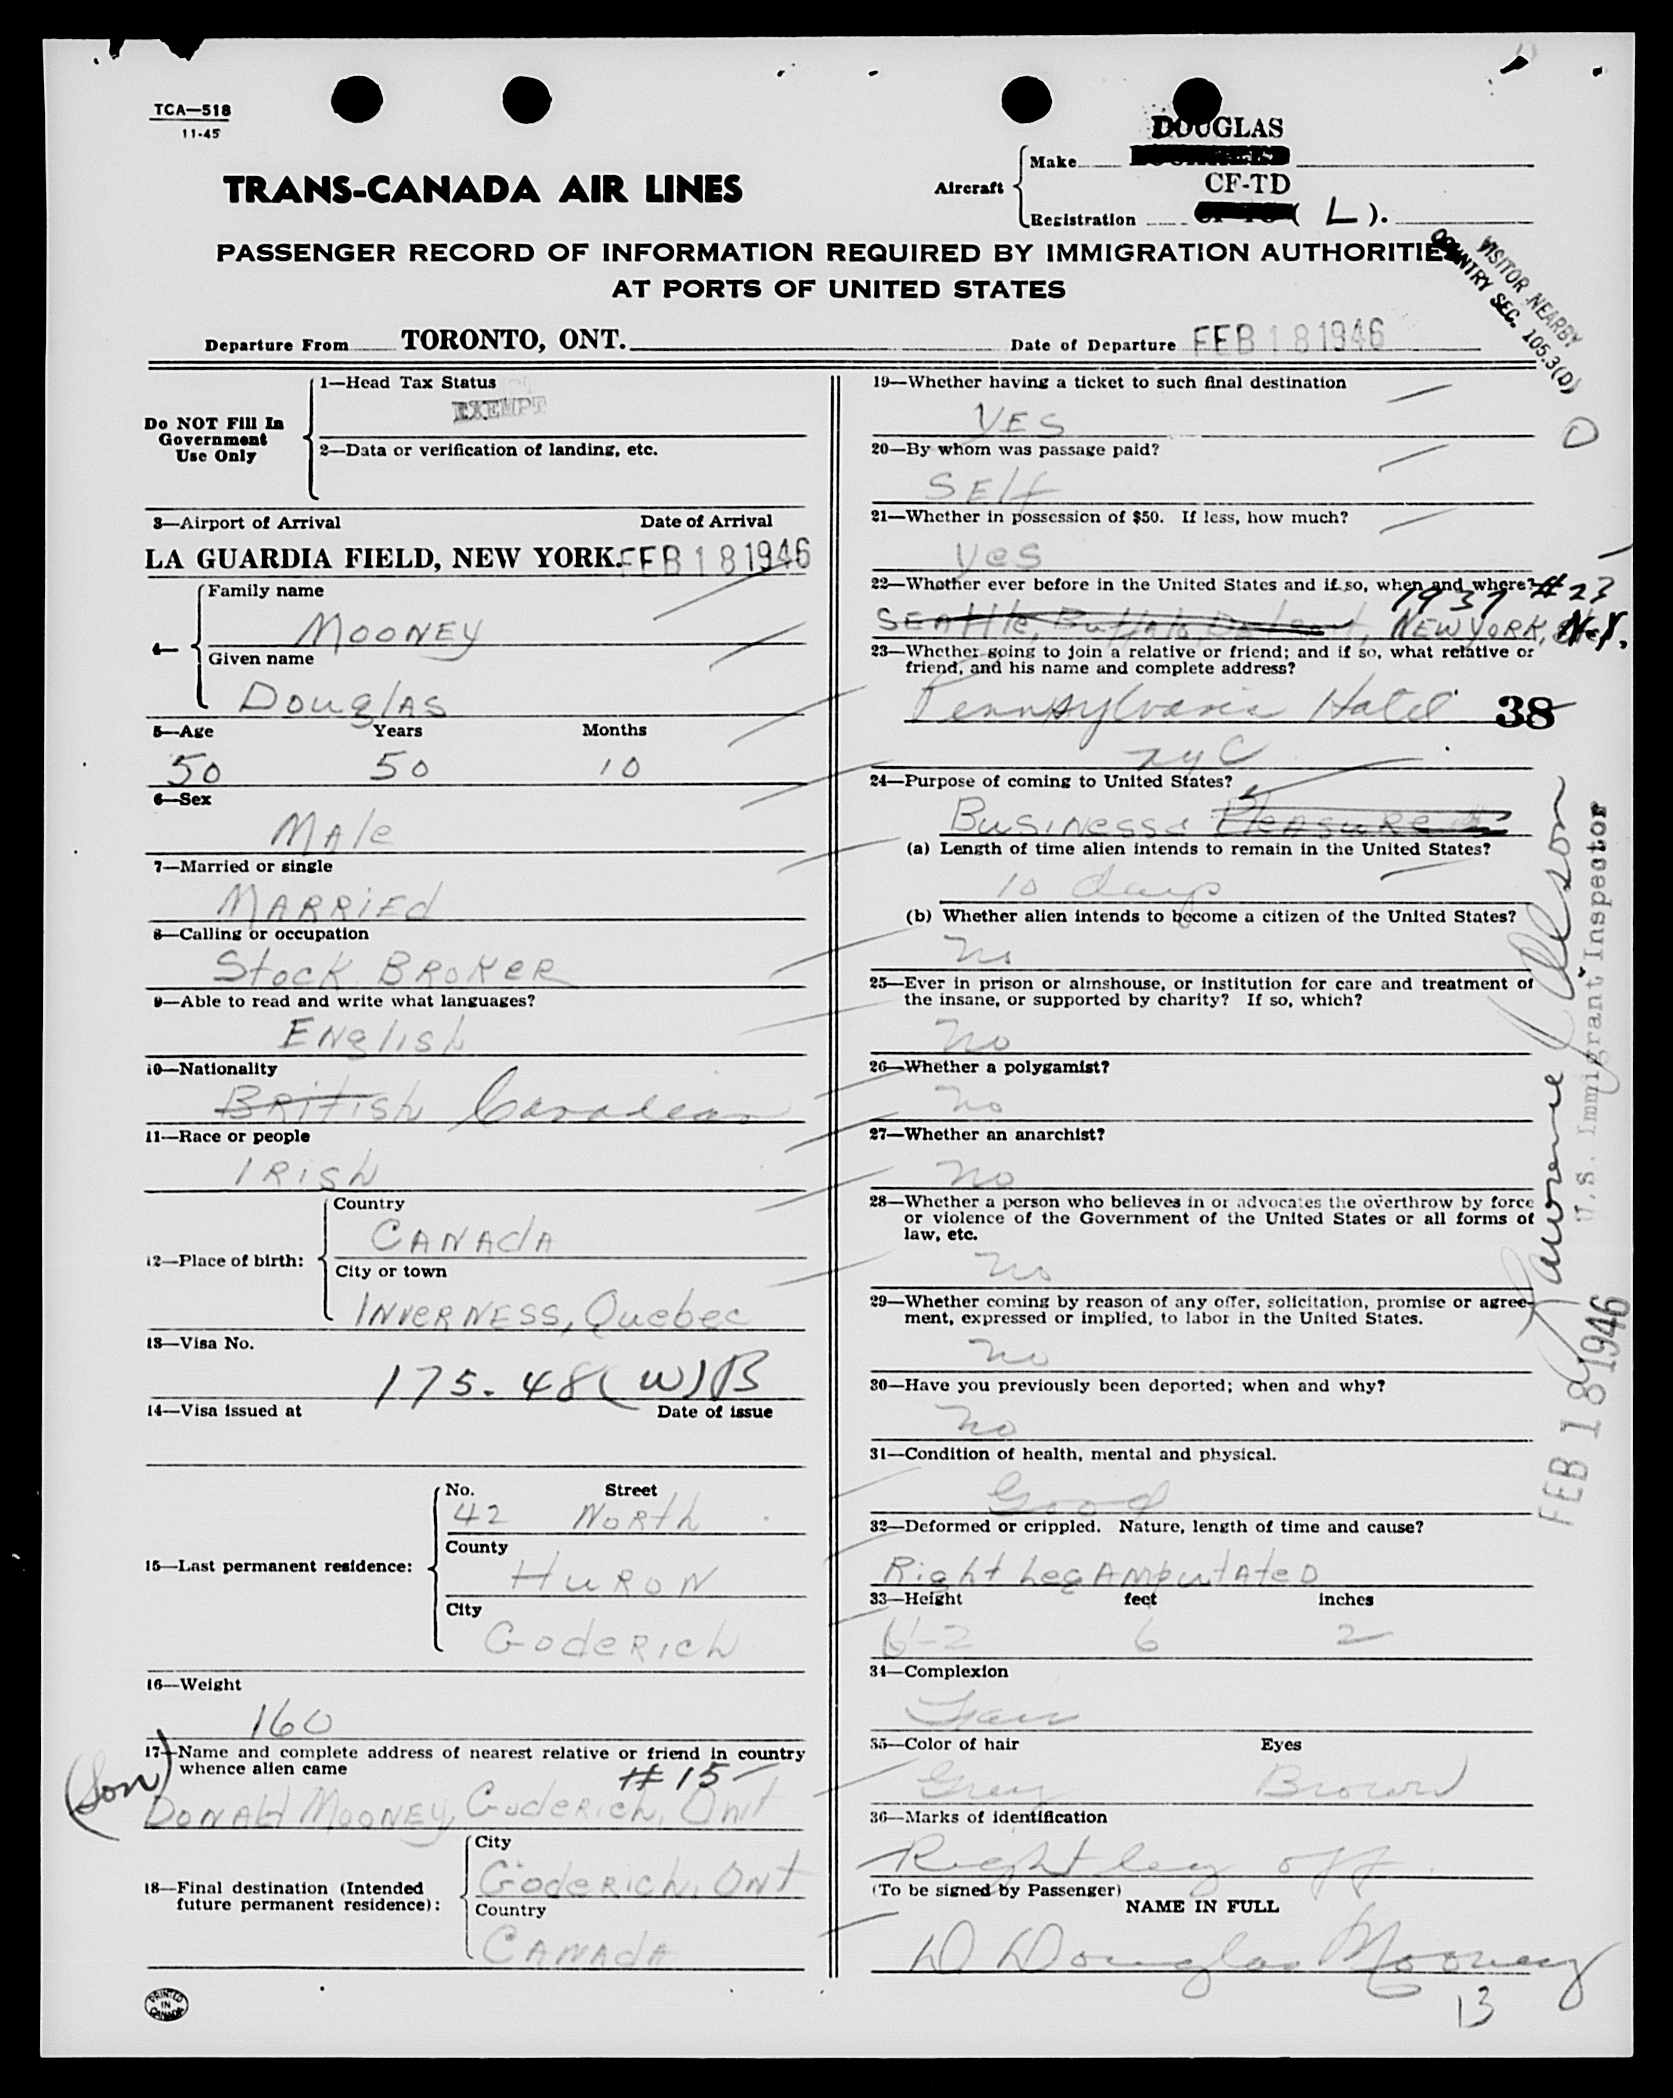 TCA—518
11-45
DOUGLAS
Make
TRANS-CANADA AIR LINES
Aircraft
CF-TD
Registration ( L ).
PASSENGER RECORD OF INFORMATION REQUIRED BY IMMIGRATION AUTHORITIES
AT PORTS OF UNITED STATES
VISITOR NEARBY
COUNTRY SEC. 105.3(D)
Departure From TORONTO, ONT. Date of Departure FEB 18 1946
Do NOT Fill In
Government
Use Only
1—Head Tax Status
EXEMPT
2—Data or verification of landing, etc.
3—Airport of Arrival Date of Arrival
LA GUARDIA FIELD, NEW YORK. FEB 18 1946
4—
Family name
MOONEY
Given name
Douglas
5—Age Years Months
50 50 10
6—Sex
Male
7—Married or single
MARRIED
8—Calling or occupation
Stock BROKER
9—Able to read and write what languages?
English
10—Nationality
British Canadian
11—Race or people
IRISH
12—Place of birth:
Country
CANADA
City or town
INVERNESS, Quebec
13—Visa No.
175.48(W)B
14—Visa issued at Date of issue
15—Last permanent residence:
No. Street
42 North
County
HURON
City
Goderich
16—Weight
160
17—Name and complete address of nearest relative or friend in country
whence alien came
#15
(Son)
DONALD MOONEY, Goderich, Ont
18—Final destination (Intended
future permanent residence):
City
Goderich, Ont
Country
CANADA
PRINTED
IN
CANADA
19—Whether having a ticket to such final destination
YES
20—By whom was passage paid?
Self
21—Whether in possession of $50. If less, how much?
Yes
22—Whether ever before in the United States and if so, when and where?
1937 #23
Seattle, Buffalo, Detroit, NEW YORK, N.Y.
23—Whether going to join a relative or friend; and if so, what relative or
friend, and his name and complete address?
Pennsylvania Hotel 38
NYC
24—Purpose of coming to United States?
Business & Pleasure
(a) Length of time alien intends to remain in the United States?
10 days
(b) Whether alien intends to become a citizen of the United States?
No
25—Ever in prison or almshouse, or institution for care and treatment of
the insane, or supported by charity? If so, which?
No
26—Whether a polygamist?
No
27—Whether an anarchist?
No
28—Whether a person who believes in or advocates the overthrow by force
or violence of the Government of the United States or all forms of
law, etc.
No
29—Whether coming by reason of any offer, solicitation, promise or agree-
ment, expressed or implied, to labor in the United States.
No
30—Have you previously been deported; when and why?
No
31—Condition of health, mental and physical.
Good
32—Deformed or crippled. Nature, length of time and cause?
Right Leg Amputated
33—Height feet inches
6'-2 6 2
34—Complexion
Fair
35—Color of hair Eyes
Grey Brown
36—Marks of identification
Right leg off
(To be signed by Passenger)
NAME IN FULL
D Douglas Mooney
13
Lawrence
U.S. Immigrant Inspector
FEB 18 1946